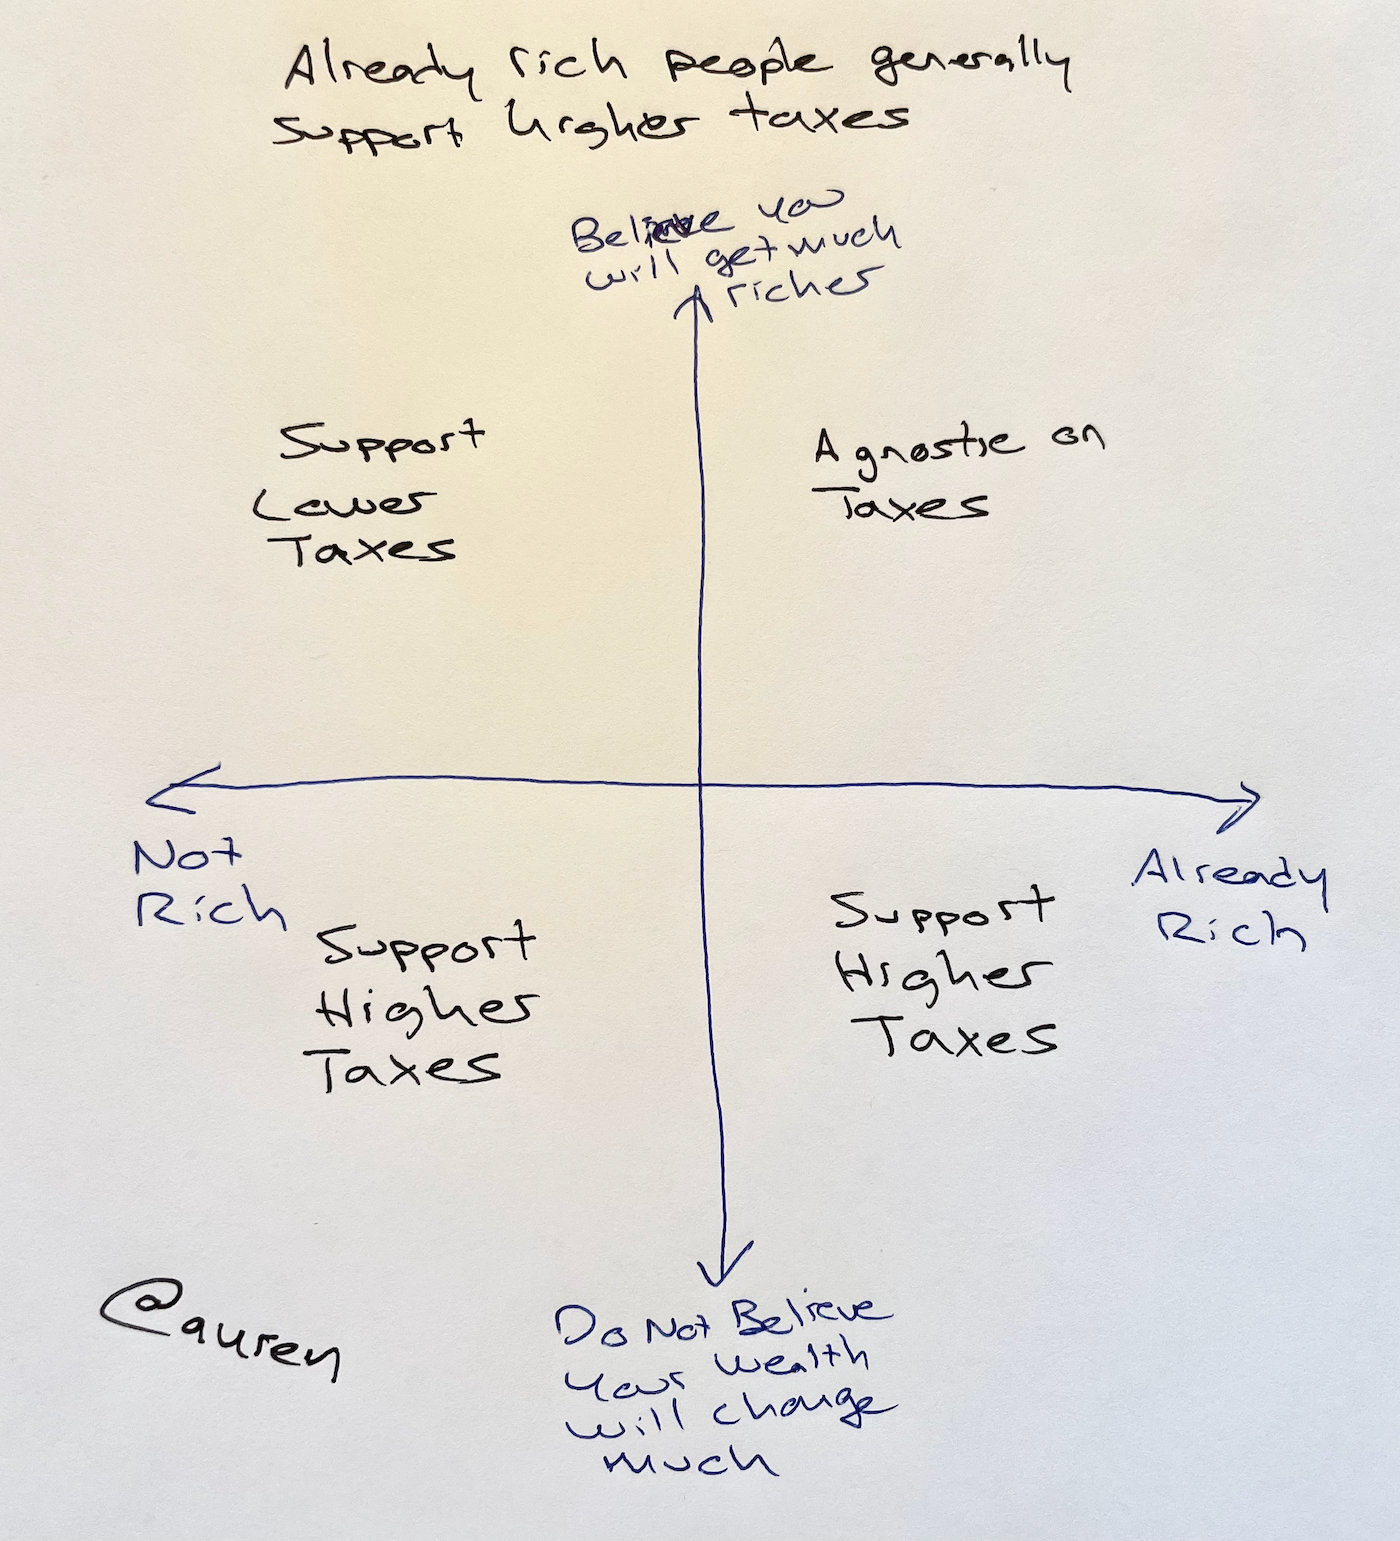 Already rich people generally
support higher taxes
Believe you
will get much
richer
Support
Lower
Taxes
Agnostic on
Taxes
Not
Rich
Already
Rich
Support
Higher
Taxes
Support
Higher
Taxes
@auren
Do Not Believe
your wealth
will change
much